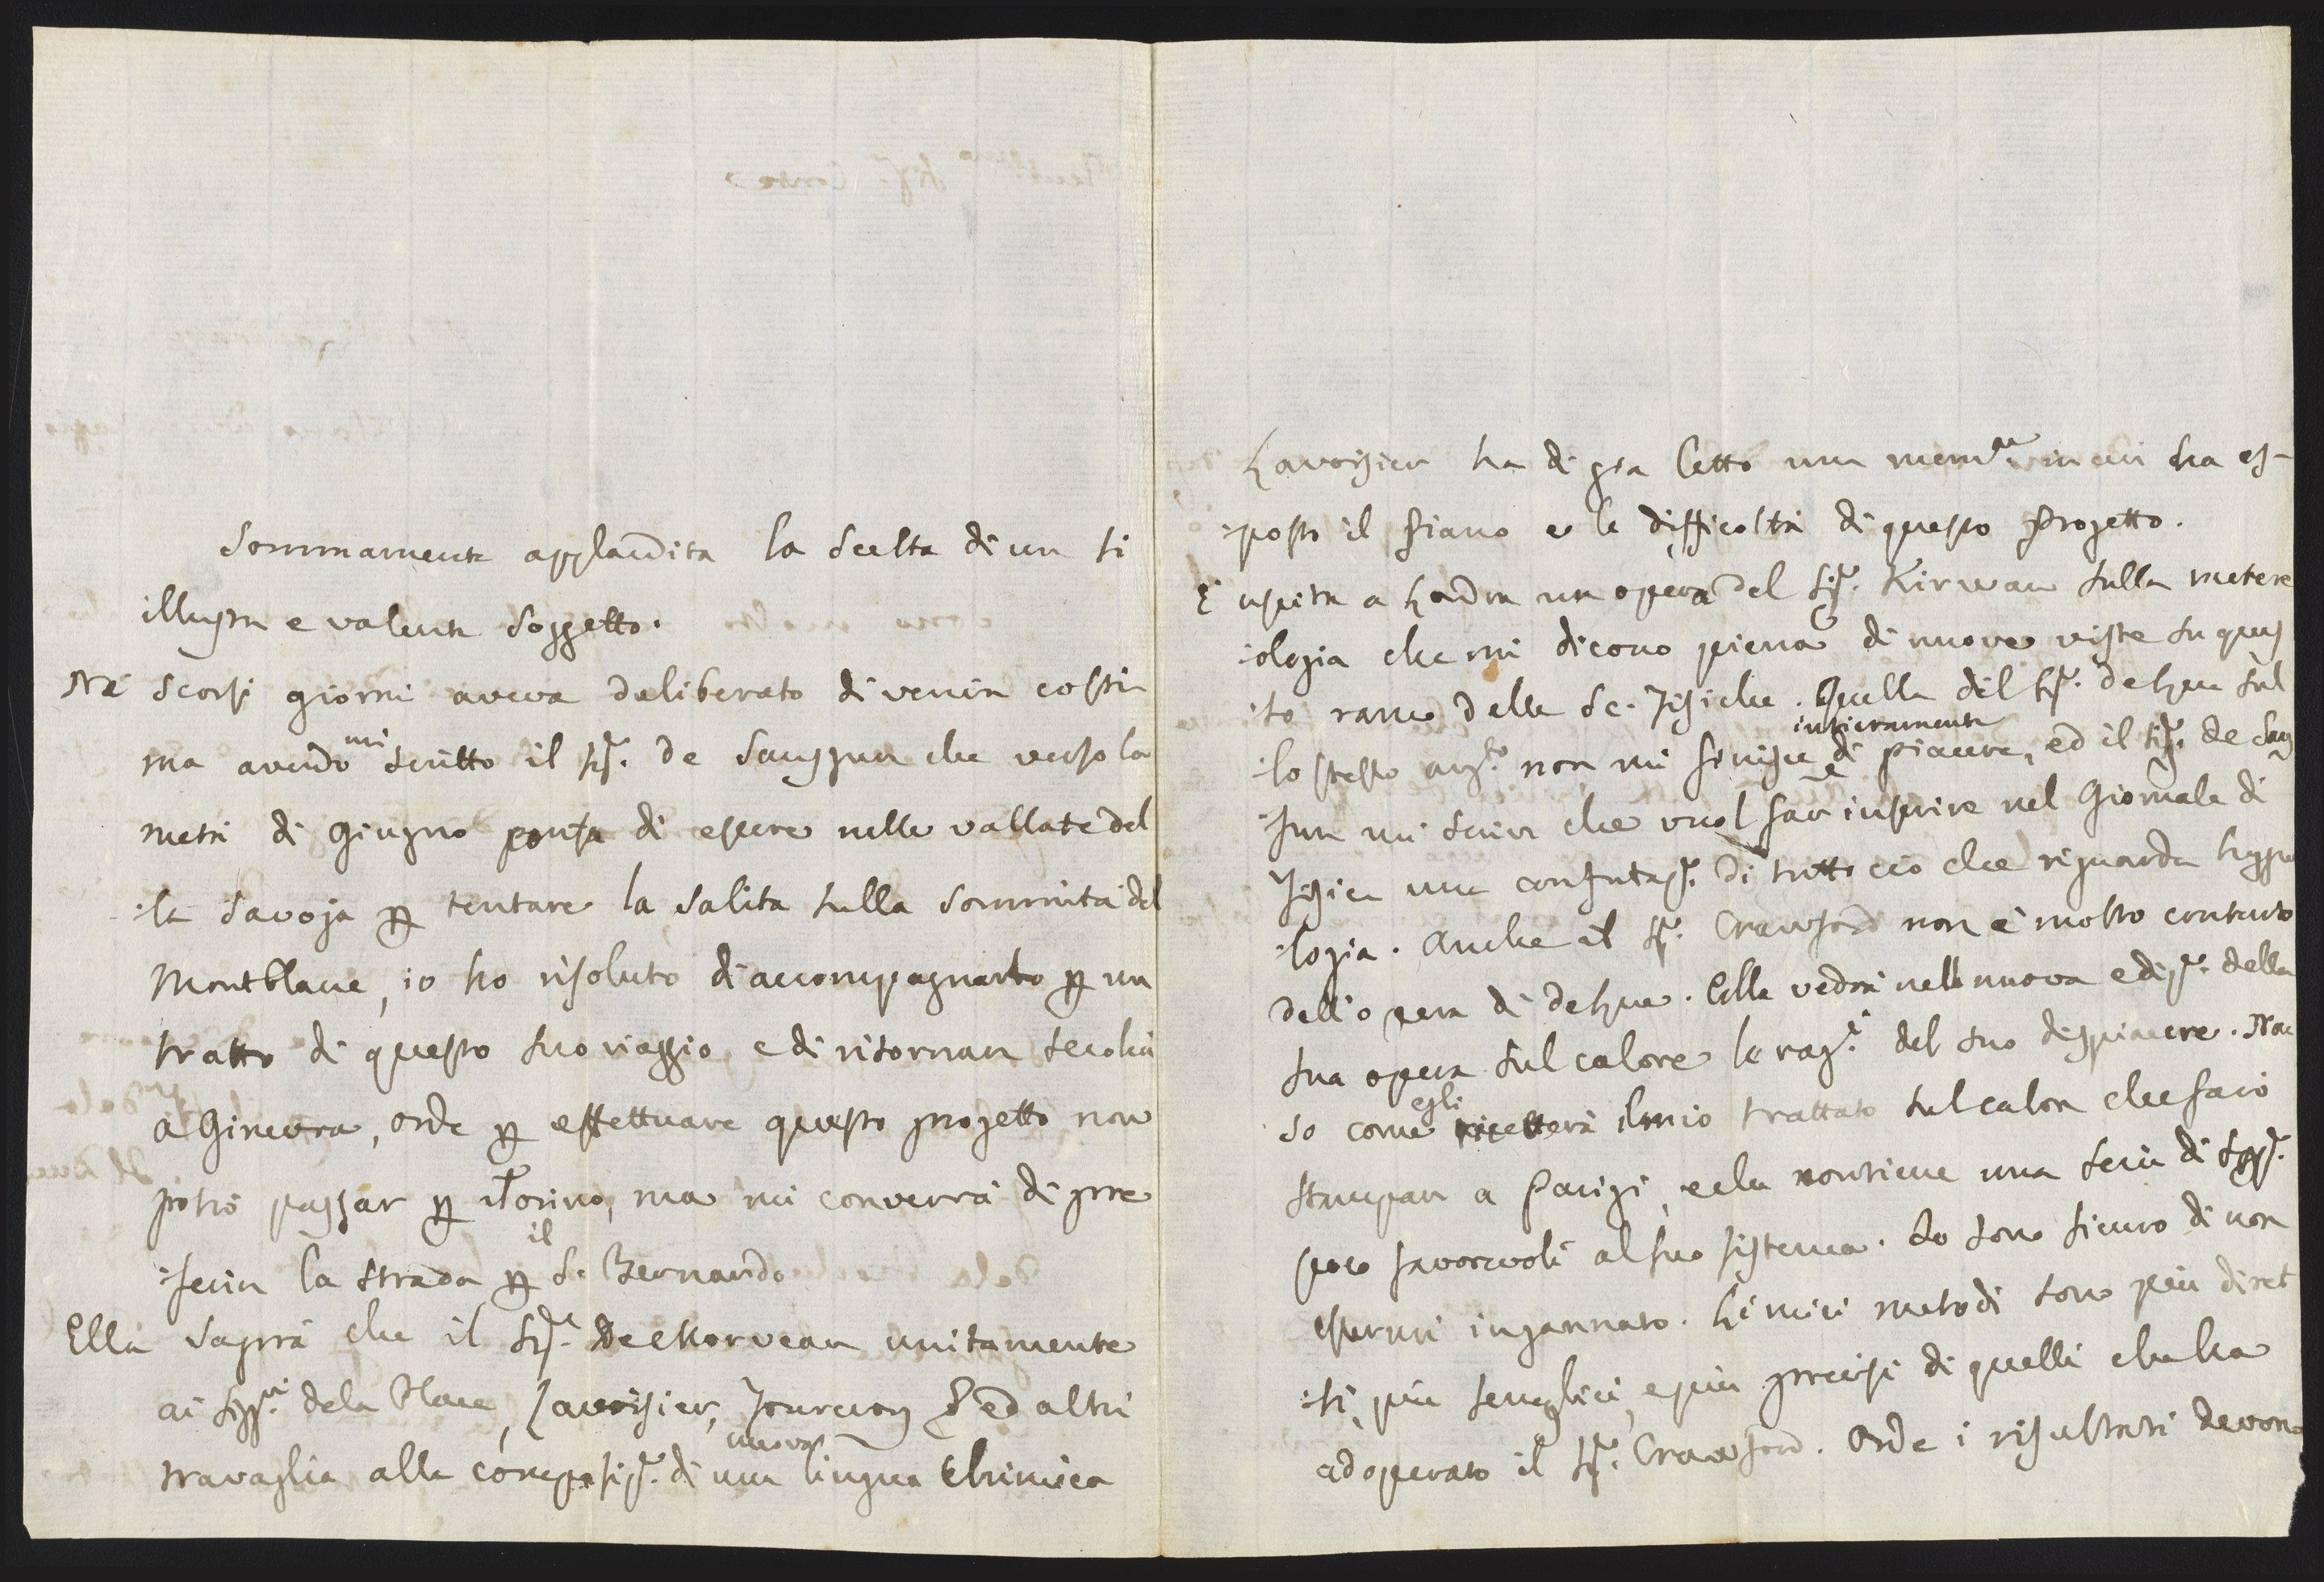 Sommamente applaudita la scelta di un si
illustre e valente soggetto.
Ne' scorsi giorni aveva deliberato di venire costì
ma avendo mi scritto il Sig.r de Saussure che verso la
metà di Giugno pensa di essere nelle vallate del
:la Savoja per tentare la salita sulla sommità del
Montblanc, io ho risoluto di accompagnarlo per un
tratto di questo suo viaggio, e di ritornare secolui
a Ginevra, onde per effettuare questo progetto non
potrò passar per Torino, ma mi converrà di pre
:ferire la strada per il S. Bernardo
Ella saprà che il Sig.r De Morveau unitamente
ai Sigg.ri de la Place, Lavoisier, Fourcroy & ed altri
travaglia alla composiz.e di una nuova lingua Chimica
Lavoisier ha di già letto una mem.a in cui ha es-
:posto il piano e le difficoltà di questo progetto.
È uscita a Londra un opera del Sig.r Kirwan sulla metere
:ologia che mi dicono piena di nuove viste su ques
:to ramo delle Sc. Fisiche. Quella del Sig.r de Luc sul
:lo stesso arg.to non mi finisce intieramente di piacere, ed il Sig.r de Saus
:sure mi scrive che vuol far inserire nel Giornale di
Fisica una confutaz.e di tutto ciò che riguarda
:logia. Anche il Sig.r Crawford non è molto contento
dell'opera di de Luc. Ella vedrà nella nuova ediz.e della
sua opera sul calore le rag.i del suo dispiacere. Non
so come egli riceverà il mio trattato sul calore che farò
stampare a Parigi, e che contiene una serie di Spp.
poco favorevoli al suo sistema. Io sono sicuro di non
essermi ingannato. Li miei metodi sono più diret
:ti, più semplici, e più precisi di quelli che ha
adoperato il Sig.r Crawford. Onde i risultati devono